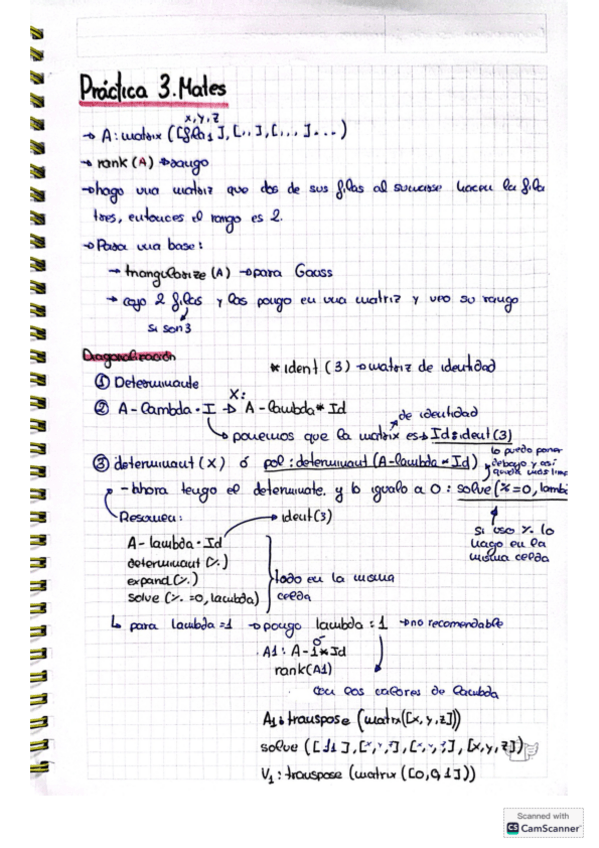 Práctica 3. Mates
x, y, z
→ A: matrix ([fila1], [,,], [,,, ]...)
→ rank (A) → rango
→ hago una matriz que dos de sus filas al sumarse hacen la fila
tres, entonces el rango es 2.
→ Para una base:
→ triangularize (A) → para Gauss
→ cojo 2 filas y las pongo en una matriz y veo su rango
si son 3
Diagonalización
* ident (3) → matriz de identidad
① Determinante
② A - lambda · I → X: A - lambda * Id
de identidad
ponemos que la matrix es → Id: ident (3)
③ determinant (X) ó pol: determinant (A-lambda * Id)
lo puedo poner
debajo y así
queda más
- Ahora tengo el determinate. y lo igualo a 0: solve (%=0, lamb
Resumen:
ident(3)
si uso % lo
hago en la
misma celda
A - lambda · Id
determinant (%)
expand (%)
solve (% =0, lambda)
todo en la misma
celda
↳ para lambda =1 → pongo lambda : 1 → no recomendable
ó
· A1: A - 1 * Id
rank(A1)
con los valores de lambda
A1: transpose (matrix([x, y, z]))
solve ([ ], [x, y, z])
V1: transpose (matrix ([0,0,1]))
Scanned with
CS CamScanner